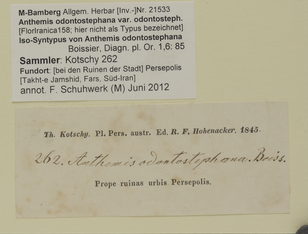 M-Bamberg Allgem. Herbar [Inv.-]Nr. 21533
Anthemis odontostephana var. odontosteph.
[FlorIranica158; hier nicht als Typus bezeichnet]
Iso-Syntypus von Anthemis odontostephana
Boissier, Diagn. pl. Or. 1,6: 85
Sammler: Kotschy 262
Fundort: [bei den Ruinen der Stadt] Persepolis
[Takht-e Jamshid, Fars, Süd-Iran]
annot. F. Schuhwerk (M) Juni 2012
Th. Kotschy. Pl. Pers. austr. Ed. R. F. Hohenacker. 1845.
262. Anthemis odontostephana Boiss.
Prope ruinas urbis Persepolis.